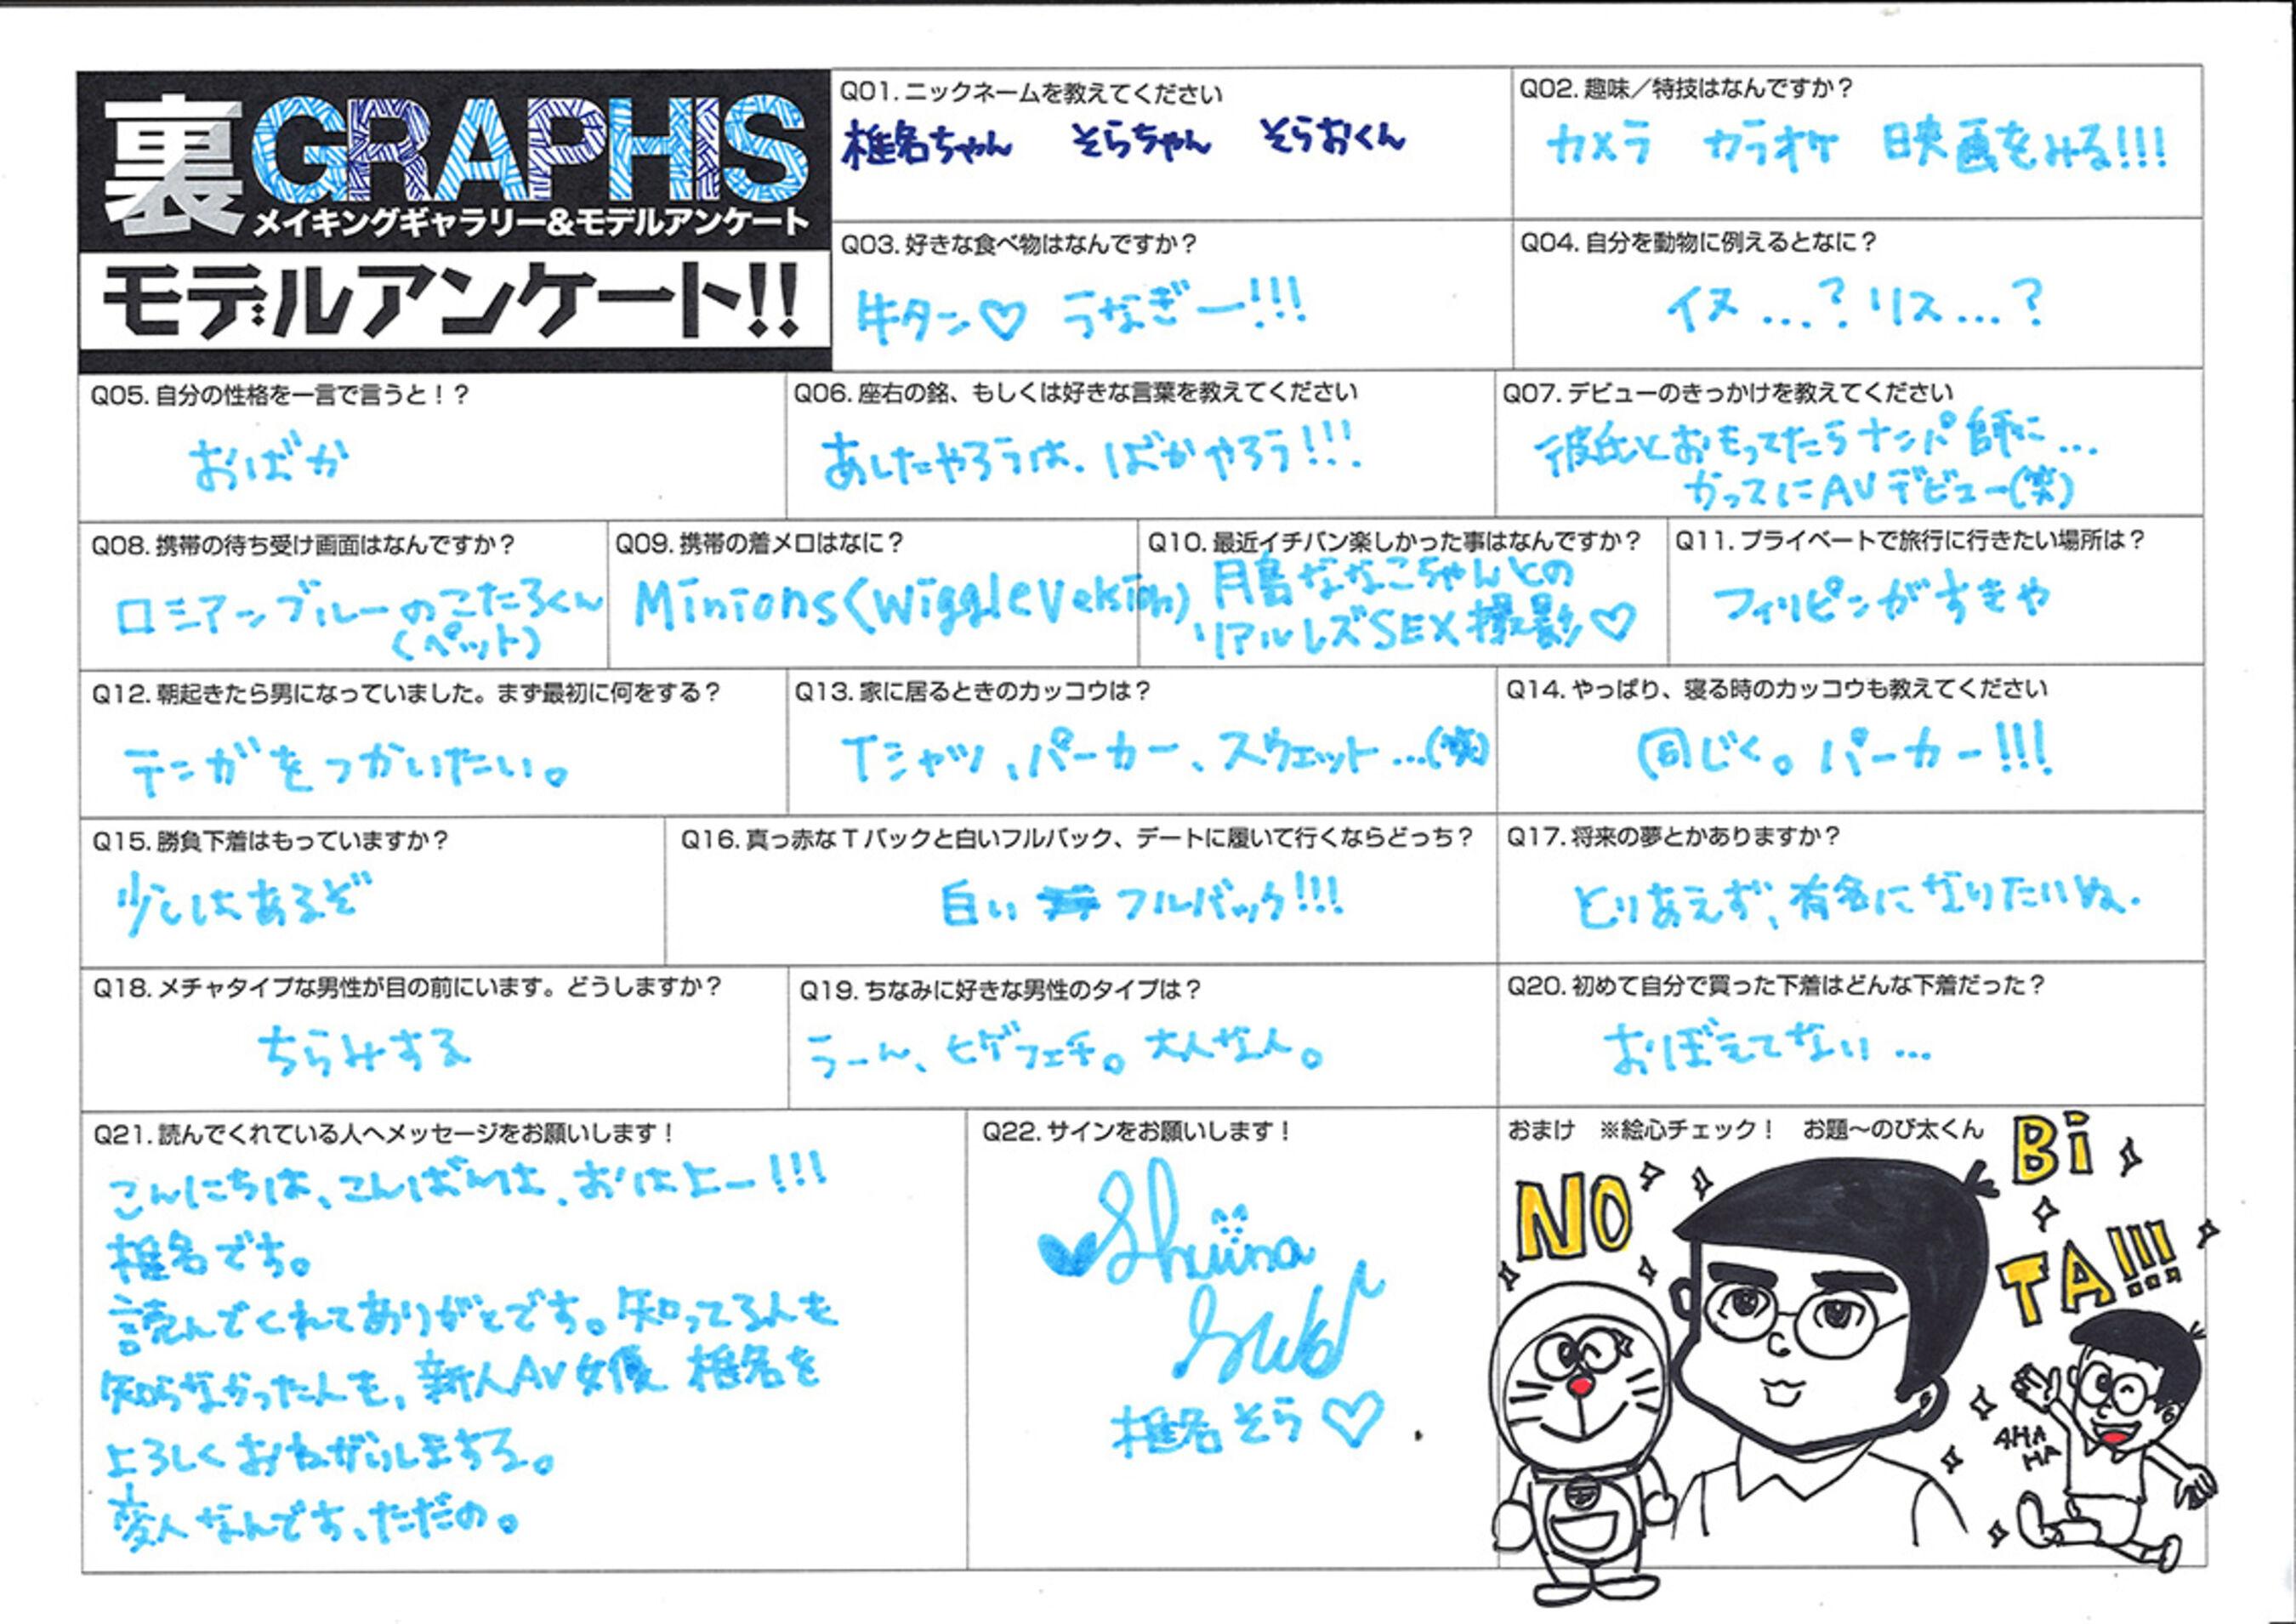 裏GRAPHIS
メイキングギャラリー&モデルアンケート
モデルアンケート!!
Q01.ニックネームを教えてください
椎名ちゃん そらちゃん そらおくん
Q02.趣味／特技はなんですか？
カメラ カラオケ 映画をみる!!!
Q03.好きな食べ物はなんですか？
牛タン♡ うなぎー!!!
Q04.自分を動物に例えるとなに？
イヌ…？リス…？
Q05.自分の性格を一言で言うと！？
おばか
Q06.座右の銘、もしくは好きな言葉を教えてください
あしたやろうは、ばかやろう!!!
Q07.デビューのきっかけを教えてください
彼氏とおもってたらナンパ師に…
かってにAVデビュー(笑)
Q08.携帯の待ち受け画面はなんですか？
ロシアンブルーのこたろくん
(ペット)
Q09.携帯の着メロはなに？
Minions(WiggleVersion)
Q10.最近イチバン楽しかった事はなんですか？
月島ななこちゃんとの
リアルレズSEX撮影♡
Q11.プライベートで旅行に行きたい場所は？
フィリピンがすきや
Q12.朝起きたら男になっていました。まず最初に何をする？
テンガをつかいたい。
Q13.家に居るときのカッコウは？
Tシャツ、パーカー、スウェット…(笑)
Q14.やっぱり、寝る時のカッコウも教えてください
同じく。パーカー!!!
Q15.勝負下着はもっていますか？
少しはあるぞ
Q16.真っ赤なTバックと白いフルバック、デートに履いて行くならどっち？
白い フルバック!!!
Q17.将来の夢とかありますか？
とりあえず、有名になりたいぬ.
Q18.メチャタイプな男性が目の前にいます。どうしますか？
ちらみする
Q19.ちなみに好きな男性のタイプは？
うーん、ヒゲフェチ。大人な人。
Q20.初めて自分で買った下着はどんな下着だった？
おぼえてない…
Q21.読んでくれている人へメッセージをお願いします！
こんにちは、こんばんは、おはよー!!!
椎名です。
読んでくれてありがとです。知ってる人も
知らなかった人も、新人AV女優 椎名を
よろしくおねがいしまする。
変人なんです、ただの。
Q22.サインをお願いします！
Shiina
椎名そら♡
おまけ ※絵心チェック！ お題〜のび太くん
NO
Bi
TA!!!
AHA
HA